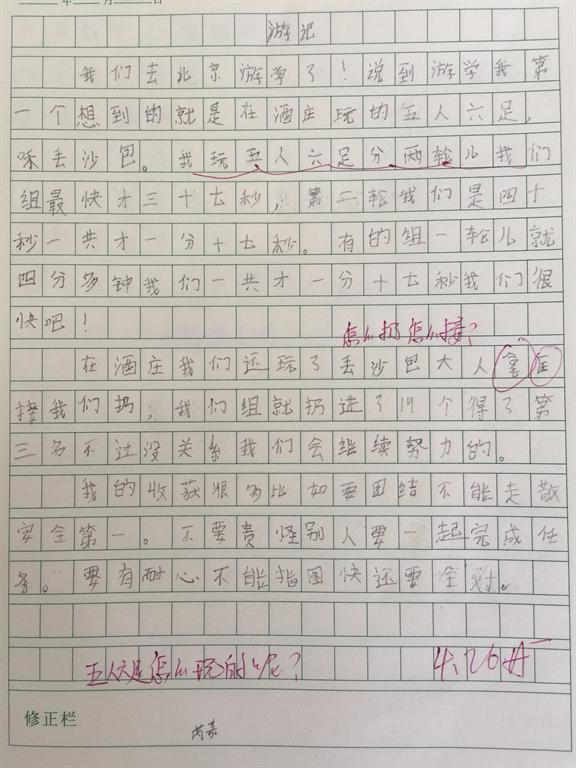 年 月
游记
我们去北京游学了！说到游学我第
一个想到的就是在酒庄玩的五人六足，
丢沙包。我玩五人六足分两轮儿我们
组最快才三十七秒，第二轮我们是四十
秒一共才一分十七秒。有的组一轮儿就
四分多钟我们一共才一分十七秒我们很
快吧！
怎么扔怎么接？
在酒庄我们还玩了丢沙包大人拿框
接我们扔，我们组就扔进了19个得了第
三名不过没关系我们会继续努力的。
我的收获狠多比如要团结不能走散
安全第一。不要责怪别人要一起完成任
务。要有耐心不能指图快还要全对。
五人六足怎么玩的呢？
4.26 A-
修正栏
芮